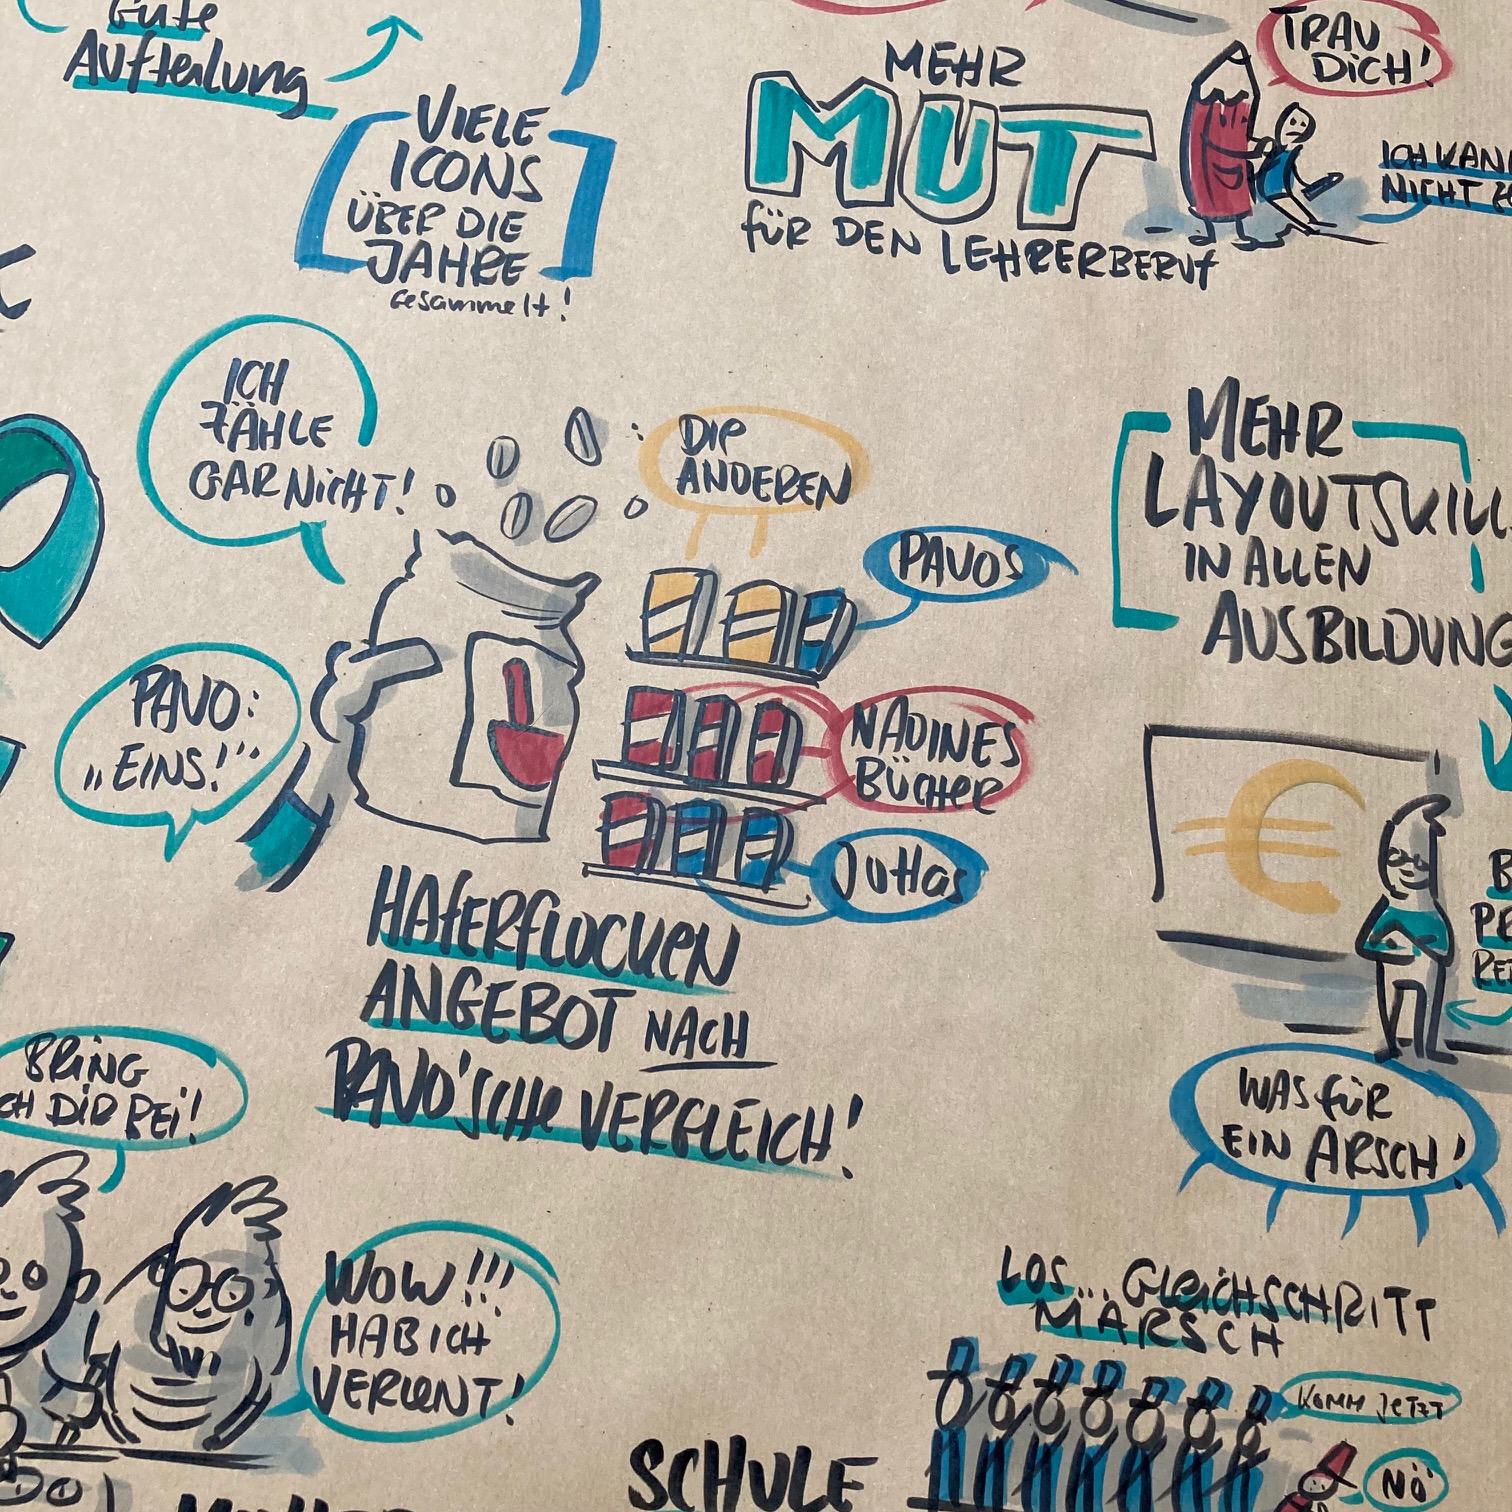 Gute
Aufteilung
VIELE
ICONS
ÜBER DIE
JAHRE
Gesammelt!
MEHR
MUT
FÜR DEN LEHRERBERUF
TRAU
DICH!
NICHT
ICH
ZÄHLE
GAR NICHT!
DIE
ANDEREN
PAVOS
PAVO:
„EINS!"
NADINES
BÜCHER
JUHAS
HAFERFLOCKEN
ANGEBOT NACH
PAVO'SCHE VERGLEICH!
MEHR
LAYOUTSKILL
IN ALLEN
AUSBILDUNG
€
WAS FÜR
EIN ARSCH!
BRING
CH DIR BEI!
WOW!!!
HAB ICH
VERLERNT!
LOS... GLEICHSCHRITT
MARSCH
KOMM JETZT
NÖ
SCHULE